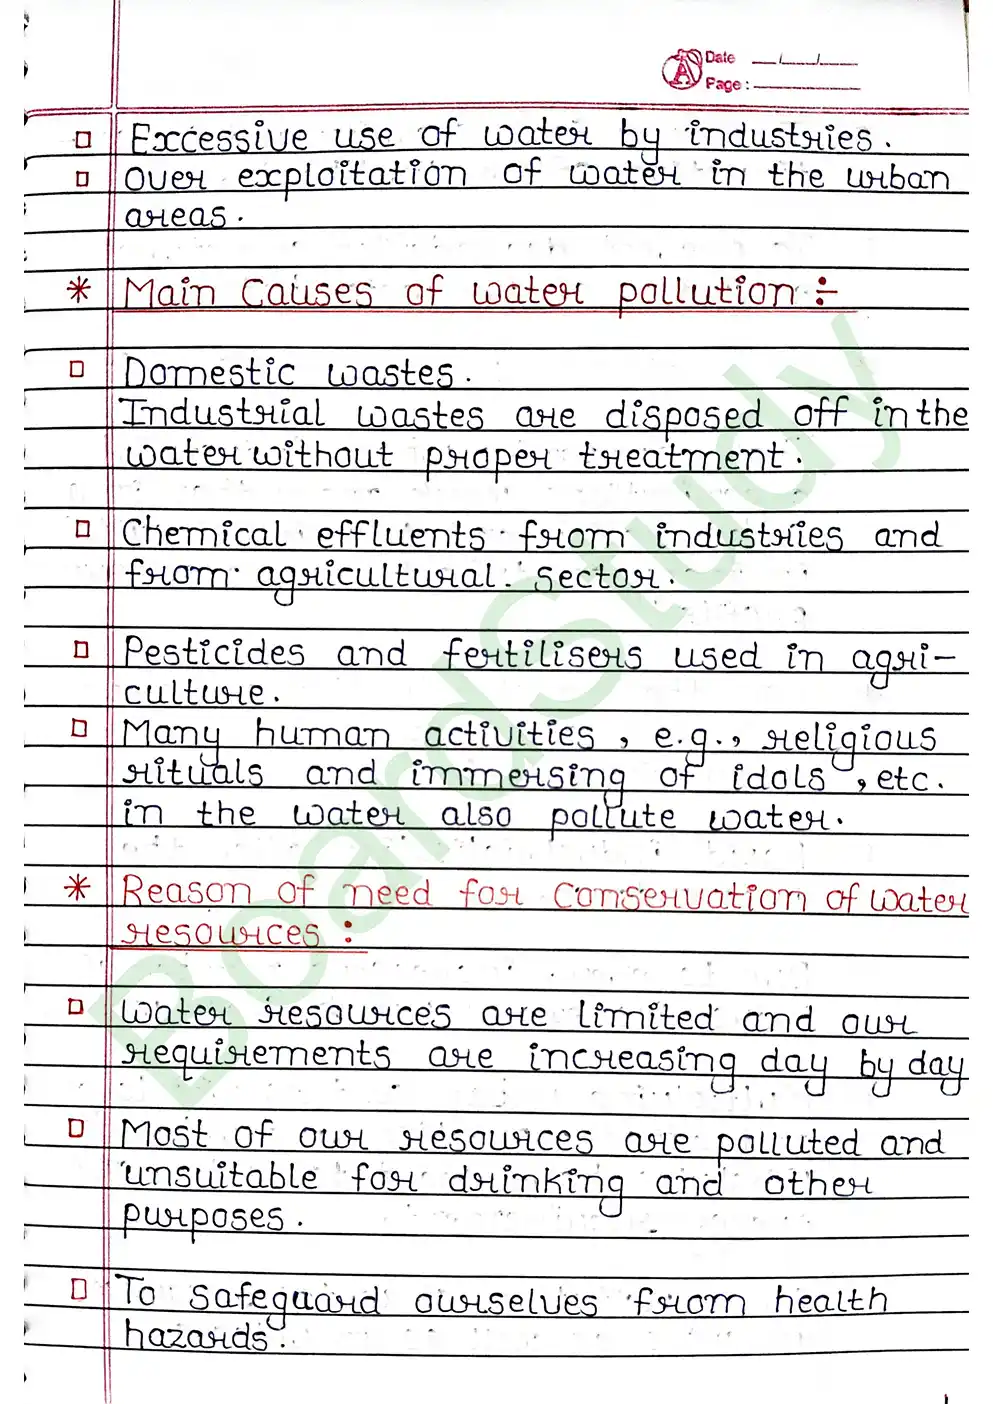 Date __/__/__
Page: ______
□ Excessive use of water by industries.
□ Over exploitation of water in the urban
areas.
* Main Causes of water pollution :-
□ Domestic wastes.
Industrial wastes are disposed off in the
water without proper treatment.
□ Chemical effluents from industries and
from agricultural sector.
□ Pesticides and fertilisers used in agri-
culture.
□ Many human activities, e.g., religious
rituals and immersing of idols, etc.
in the water also pollute water.
* Reason of need for Conservation of water
resources :
□ Water resources are limited and our
requirements are increasing day by day
□ Most of our resources are polluted and
unsuitable for drinking and other
purposes.
□ To safeguard ourselves from health
hazards.
BoardStudy